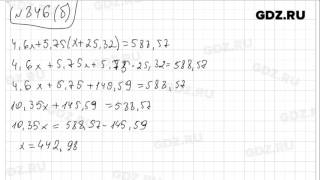 №846(б)
GDZ.RU
4,6x+5,75(x+25,32)=588,57
4,6x+5,75x+5,75·25,32=588,57
4,6x+5,75+149,59=588,57
10,35x+145,59=588,57
10,35x=588,57-145,59
x=442,98
GDZ.RU